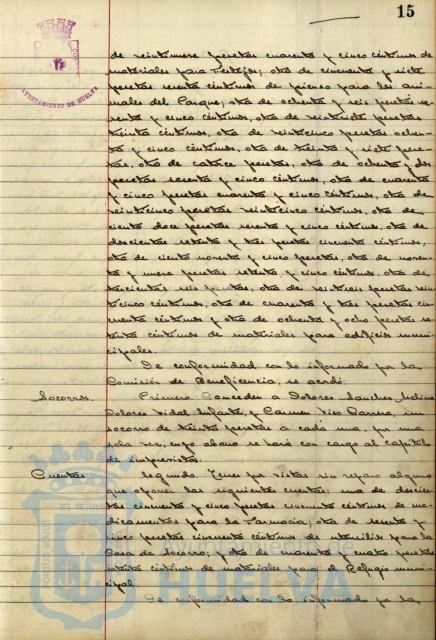 15
AYUNTAMIENTO DE HUELVA
de veintinueve pesetas cuarenta y cinco céntimos de
materiales para festejos; otra de cincuenta y siete
pesetas sesenta céntimos de pienso para los ani-
males del Parque, otra de ochenta y seis pesetas se-
senta y cinco céntimos, otra de veintisiete pesetas
treinta céntimos, otra de veinticinco pesetas ochen-
ta y cinco céntimos, otra de treinta y siete pese-
tas, otra de catorce pesetas, otra de ochenta y dos
pesetas sesenta y cinco céntimos, otra de cuarenta
y cinco pesetas cuarenta y cinco céntimos, otra de
veinticinco pesetas veinticinco céntimos, otra de
ciento doce pesetas sesenta y cinco céntimos, otra de
doscientas setenta y tres pesetas cincuenta céntimos,
otra de ciento noventa y cinco pesetas, otra de noven-
ta y nueve pesetas setenta y cinco céntimos, otra de
trescientas seis pesetas, otra de veintiseis pesetas vein-
ticinco céntimos, otra de cuarenta y tres pesetas cin-
cuenta céntimos y otra de ochenta y ocho pesetas se-
tenta céntimos de materiales para edificios muni-
cipales.
De conformidad con lo informado por la
Comisión de Beneficencia, se acordó:
Socorros. Primero. Conceder a Dolores Sanchez Molina
Dolores Vidal Infante, y Carmen Barrera, un
socorro de treinta pesetas a cada una, por una
sola vez, cuyo abono se hará con cargo al capítulo
de imprevistos.
Cuentas Segundo. Tener por vistas sin reparo alguno
que oponer las siguientes cuentas: una de doscien-
tas cincuenta y cinco pesetas cincuenta céntimos de me-
dicamentos para la Farmacia; otra de sesenta y
cinco pesetas cincuenta céntimos de utensilios para la
Casa de Socorro; y otra de cuarenta y cuatro pesetas
céntimos de materiales para el Refugio muni-
cipal.
De conformidad con lo informado por la
HUELVA